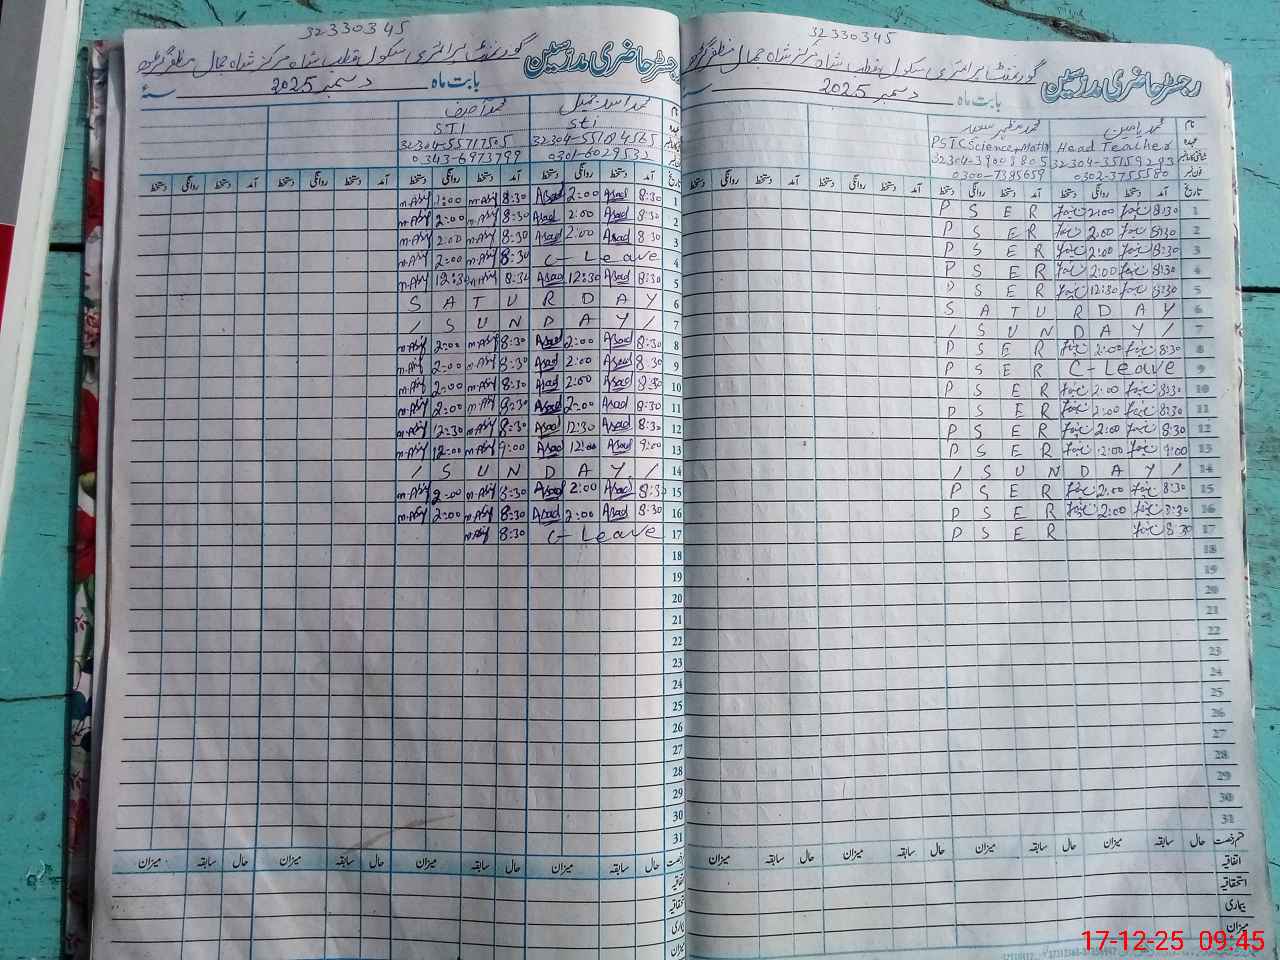 32330345
گورنمنٹ پرائمری سکول قطب شاہ مرکز شاہ جمال مظفر گڑھ رجسٹر حاضری مدرسین
بابت ماہ دسمبر 2025
نام محمد یاسین
عہدہ Head Teacher PST(Science+Math)
32304-3515929-3 32304-3900880-5
0302-3755580 0300-7385659
تاریخ آمد دستخط روانگی دستخط آمد دستخط روانگی دستخط آمد دستخط روانگی دستخط آمد دستخط روانگی دستخط
1 8:30 2:00 R E S P
2 8:30 2:00 R E S P
3 8:30 2:00 R E S P
4 8:30 2:00 R E S P
5 8:30 12:30 R E S P
6 S A T U R D A Y
7 / S U N D A Y /
8 8:30 2:00 R E S P
9 C-Leave R E S P
10 8:30 2:00 R E S P
11 8:30 2:00 R E S P
12 8:30 2:00 R E S P
13 9:00 2:00 R E S P
14 / S U N D A Y /
15 8:30 2:00 R E S P
16 8:30 2:00 R E S P
17 8:30 R E S P
18
19
20
21
22
23
24
25
26
27
28
29
30
31
قسم رخصت حال سابقہ میزان حال سابقہ میزان حال سابقہ میزان
اتفاقیہ
استحقاقیہ
بیماری
میزان
32330345
گورنمنٹ پرائمری سکول قطب شاہ مرکز شاہ جمال مظفر گڑھ رجسٹر حاضری مدرسین
بابت ماہ دسمبر 2025 سنہ
محمد اسد جمیل محمد آصف
Sti STI
0301-6029532 0343-6973799
آمد دستخط روانگی دستخط آمد دستخط روانگی دستخط آمد دستخط روانگی دستخط آمد دستخط روانگی دستخط
1 8:30 Asad 2:00 Asad 8:30 m.Asif 2:00 m.Asif
2 8:30 Asad 2:00 Asad 8:30 m.Asif 2:00 m.Asif
3 8:30 Asad 2:00 Asad 8:30 m.Asif 2:00 m.Asif
4 C-Leave 8:30 m.Asif 2:00 m.Asif
5 8:30 Asad 12:30 Asad 8:30 m.Asif 12:30 m.Asif
6 S A T U R D A Y
7 / S U N D A Y /
8 8:30 Asad 2:00 Asad 8:30 m.Asif 2:00 m.Asif
9 8:30 Asad 2:00 Asad 8:30 m.Asif 2:00 m.Asif
10 8:30 Asad 2:00 Asad 8:30 m.Asif 2:00 m.Asif
11 8:30 Asad 2:00 Asad 8:30 m.Asif 2:00 m.Asif
12 8:30 Asad 12:30 Asad 8:30 m.Asif 12:30 m.Asif
13 9:00 Asad 12:00 Asad 9:00 m.Asif 12:00 m.Asif
14 / S U N D A Y /
15 8:30 Asad 2:00 Asad 8:30 m.Asif 2:00 m.Asif
16 8:30 Asad 2:00 Asad 8:30 m.Asif 2:00 m.Asif
17 C-Leave 8:30 m.Asif
18
19
20
21
22
23
24
25
26
27
28
29
30
31
حال سابقہ میزان حال سابقہ میزان حال سابقہ میزان حال سابقہ میزان
17-12-25 09:45